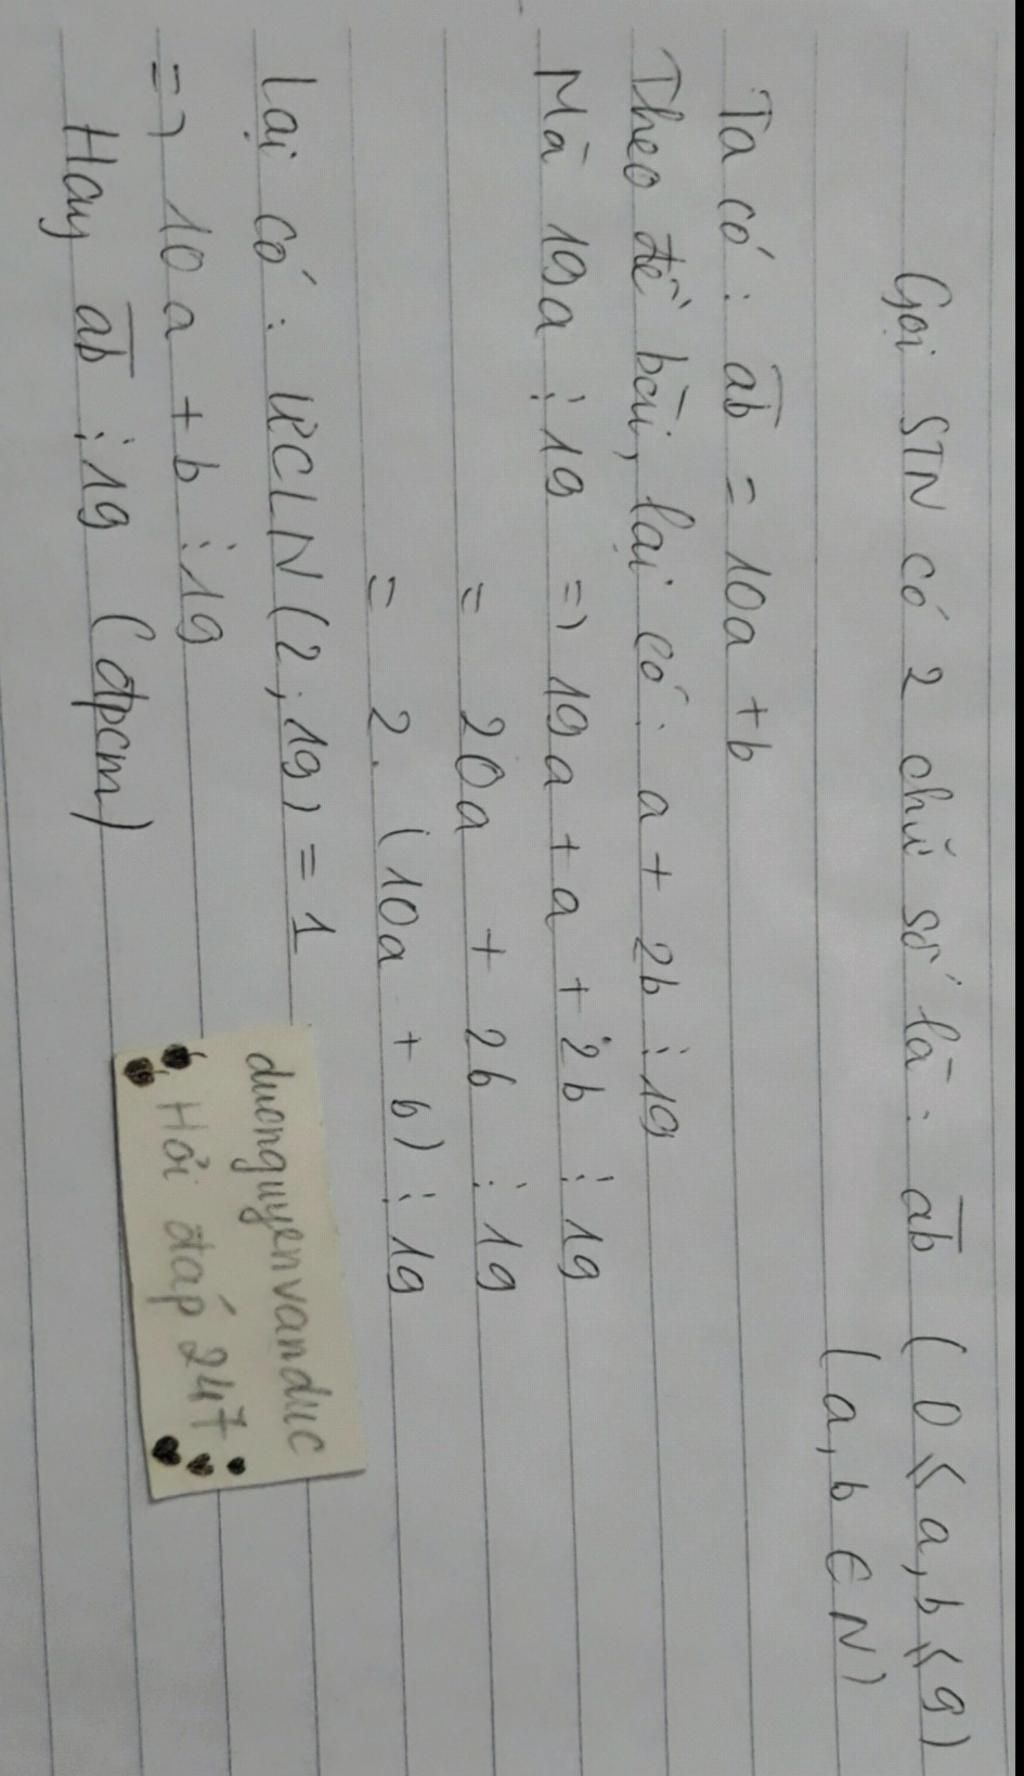 Gọi STN có 2 chữ số là: a̅b̅ (0 ⩽ a, b ⩽ 9)
(a, b ∈ N)
Ta có: a̅b̅ = 10a + b
Theo đề bài, lại có: a + 2b ⋮ 19
Mà 19a ⋮ 19 => 19a + a + 2b ⋮ 19
= 20a + 2b ⋮ 19
= 2. (10a + b) ⋮ 19
Lại có: ƯCLN (2; 19) = 1
=> 10a + b ⋮ 19
Hay a̅b̅ ⋮ 19 (đpcm)
duonguyenvanduc
Hỏi đáp 247